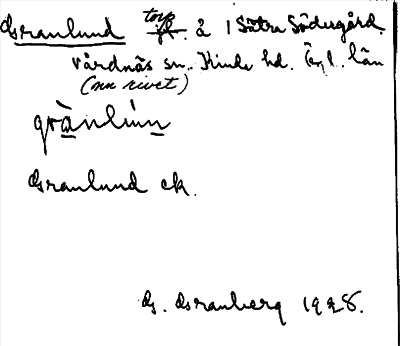 Granlund torp å 1 Sätra Södergård.
Vårdnäs sn. Kinda hd. Ögl. län
(nu rivet)
grànlùn
Granlund ek.
G. Granberg 1928.